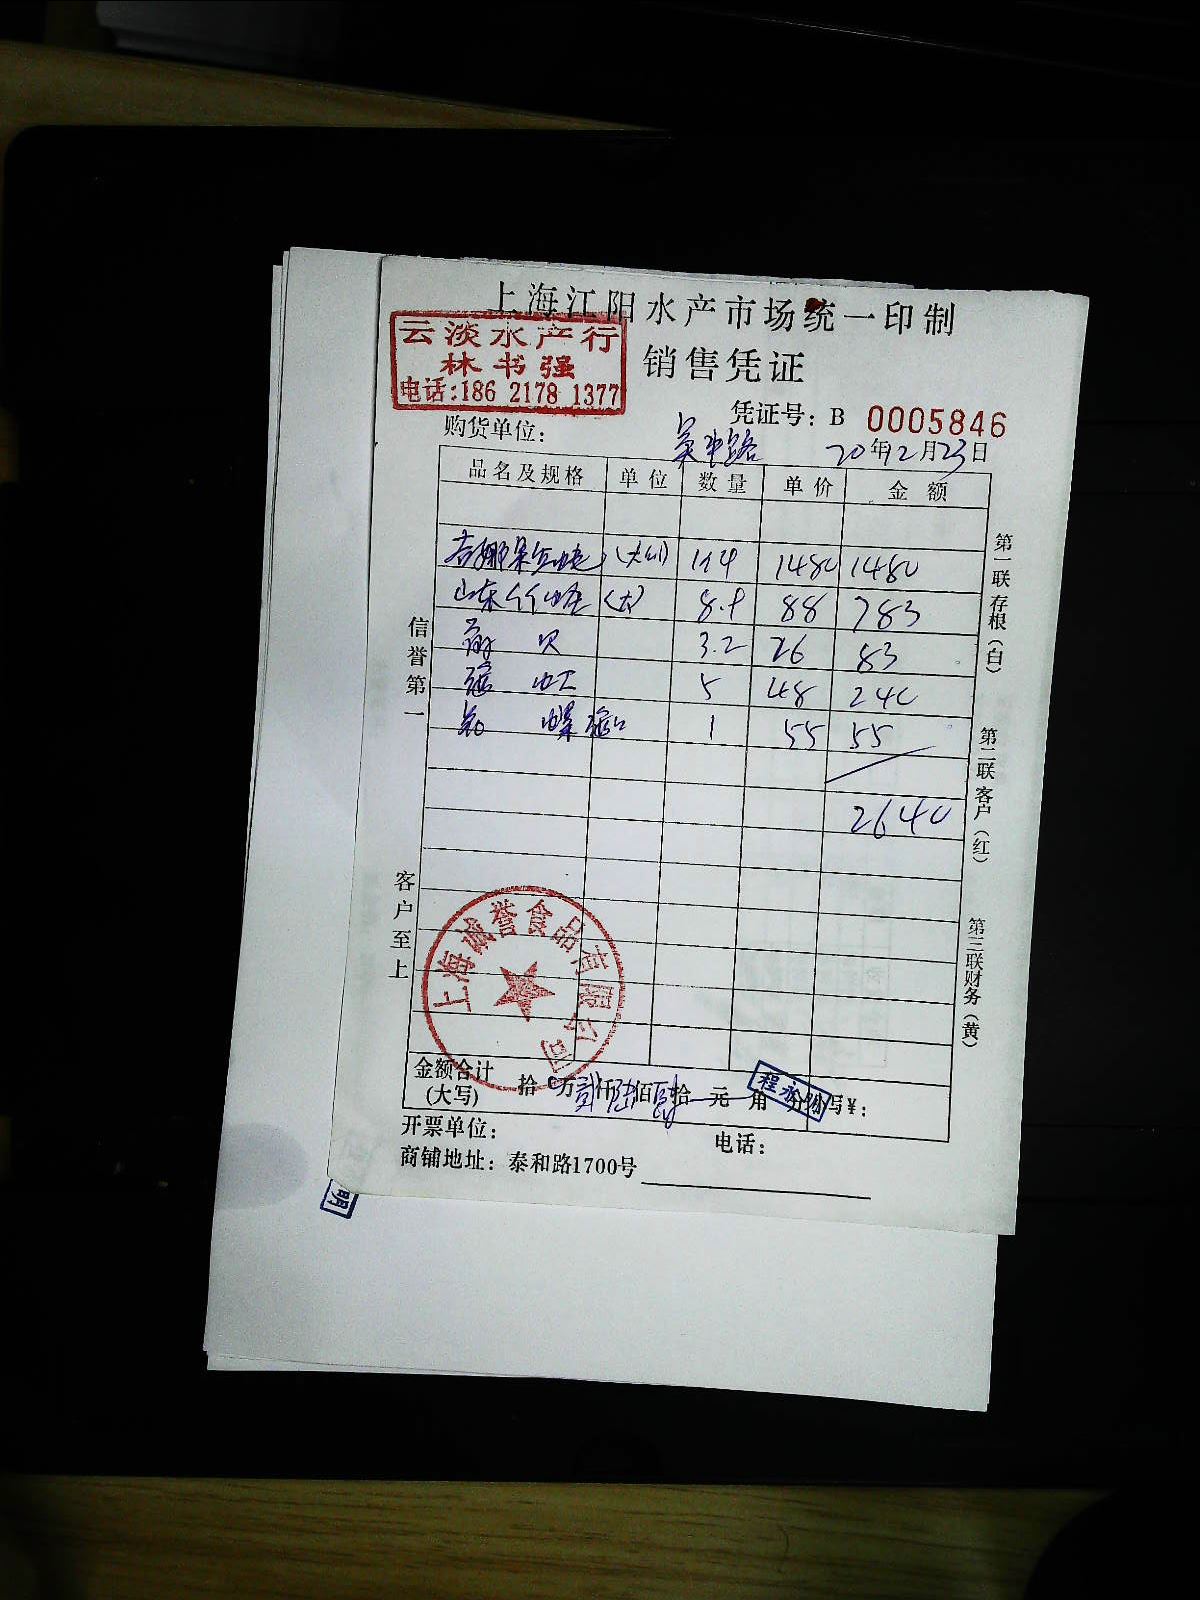 上海江阳水产市场统一印制
云淡水产行
林书强
电话:186 2178 1377
销售凭证
凭证号: B 0005846
购货单位: 吴中路 20年12月23日
品名及规格 单位 数量 单价 金额
1480 1480
山东竹蛏 (大) 8.9 88 783
贝 3.2 26 83
5 48 240
螺 1 55 55
2640
信誉第一
客户至上
第一联存根(白)
第二联客户(红)
第三联财务(黄)
上海诚誉食品有限公司
金额合计 拾 万贰仟陆佰肆拾 元 角 分 写¥:
(大写)
程永明
开票单位: 电话:
商铺地址: 泰和路1700号
明